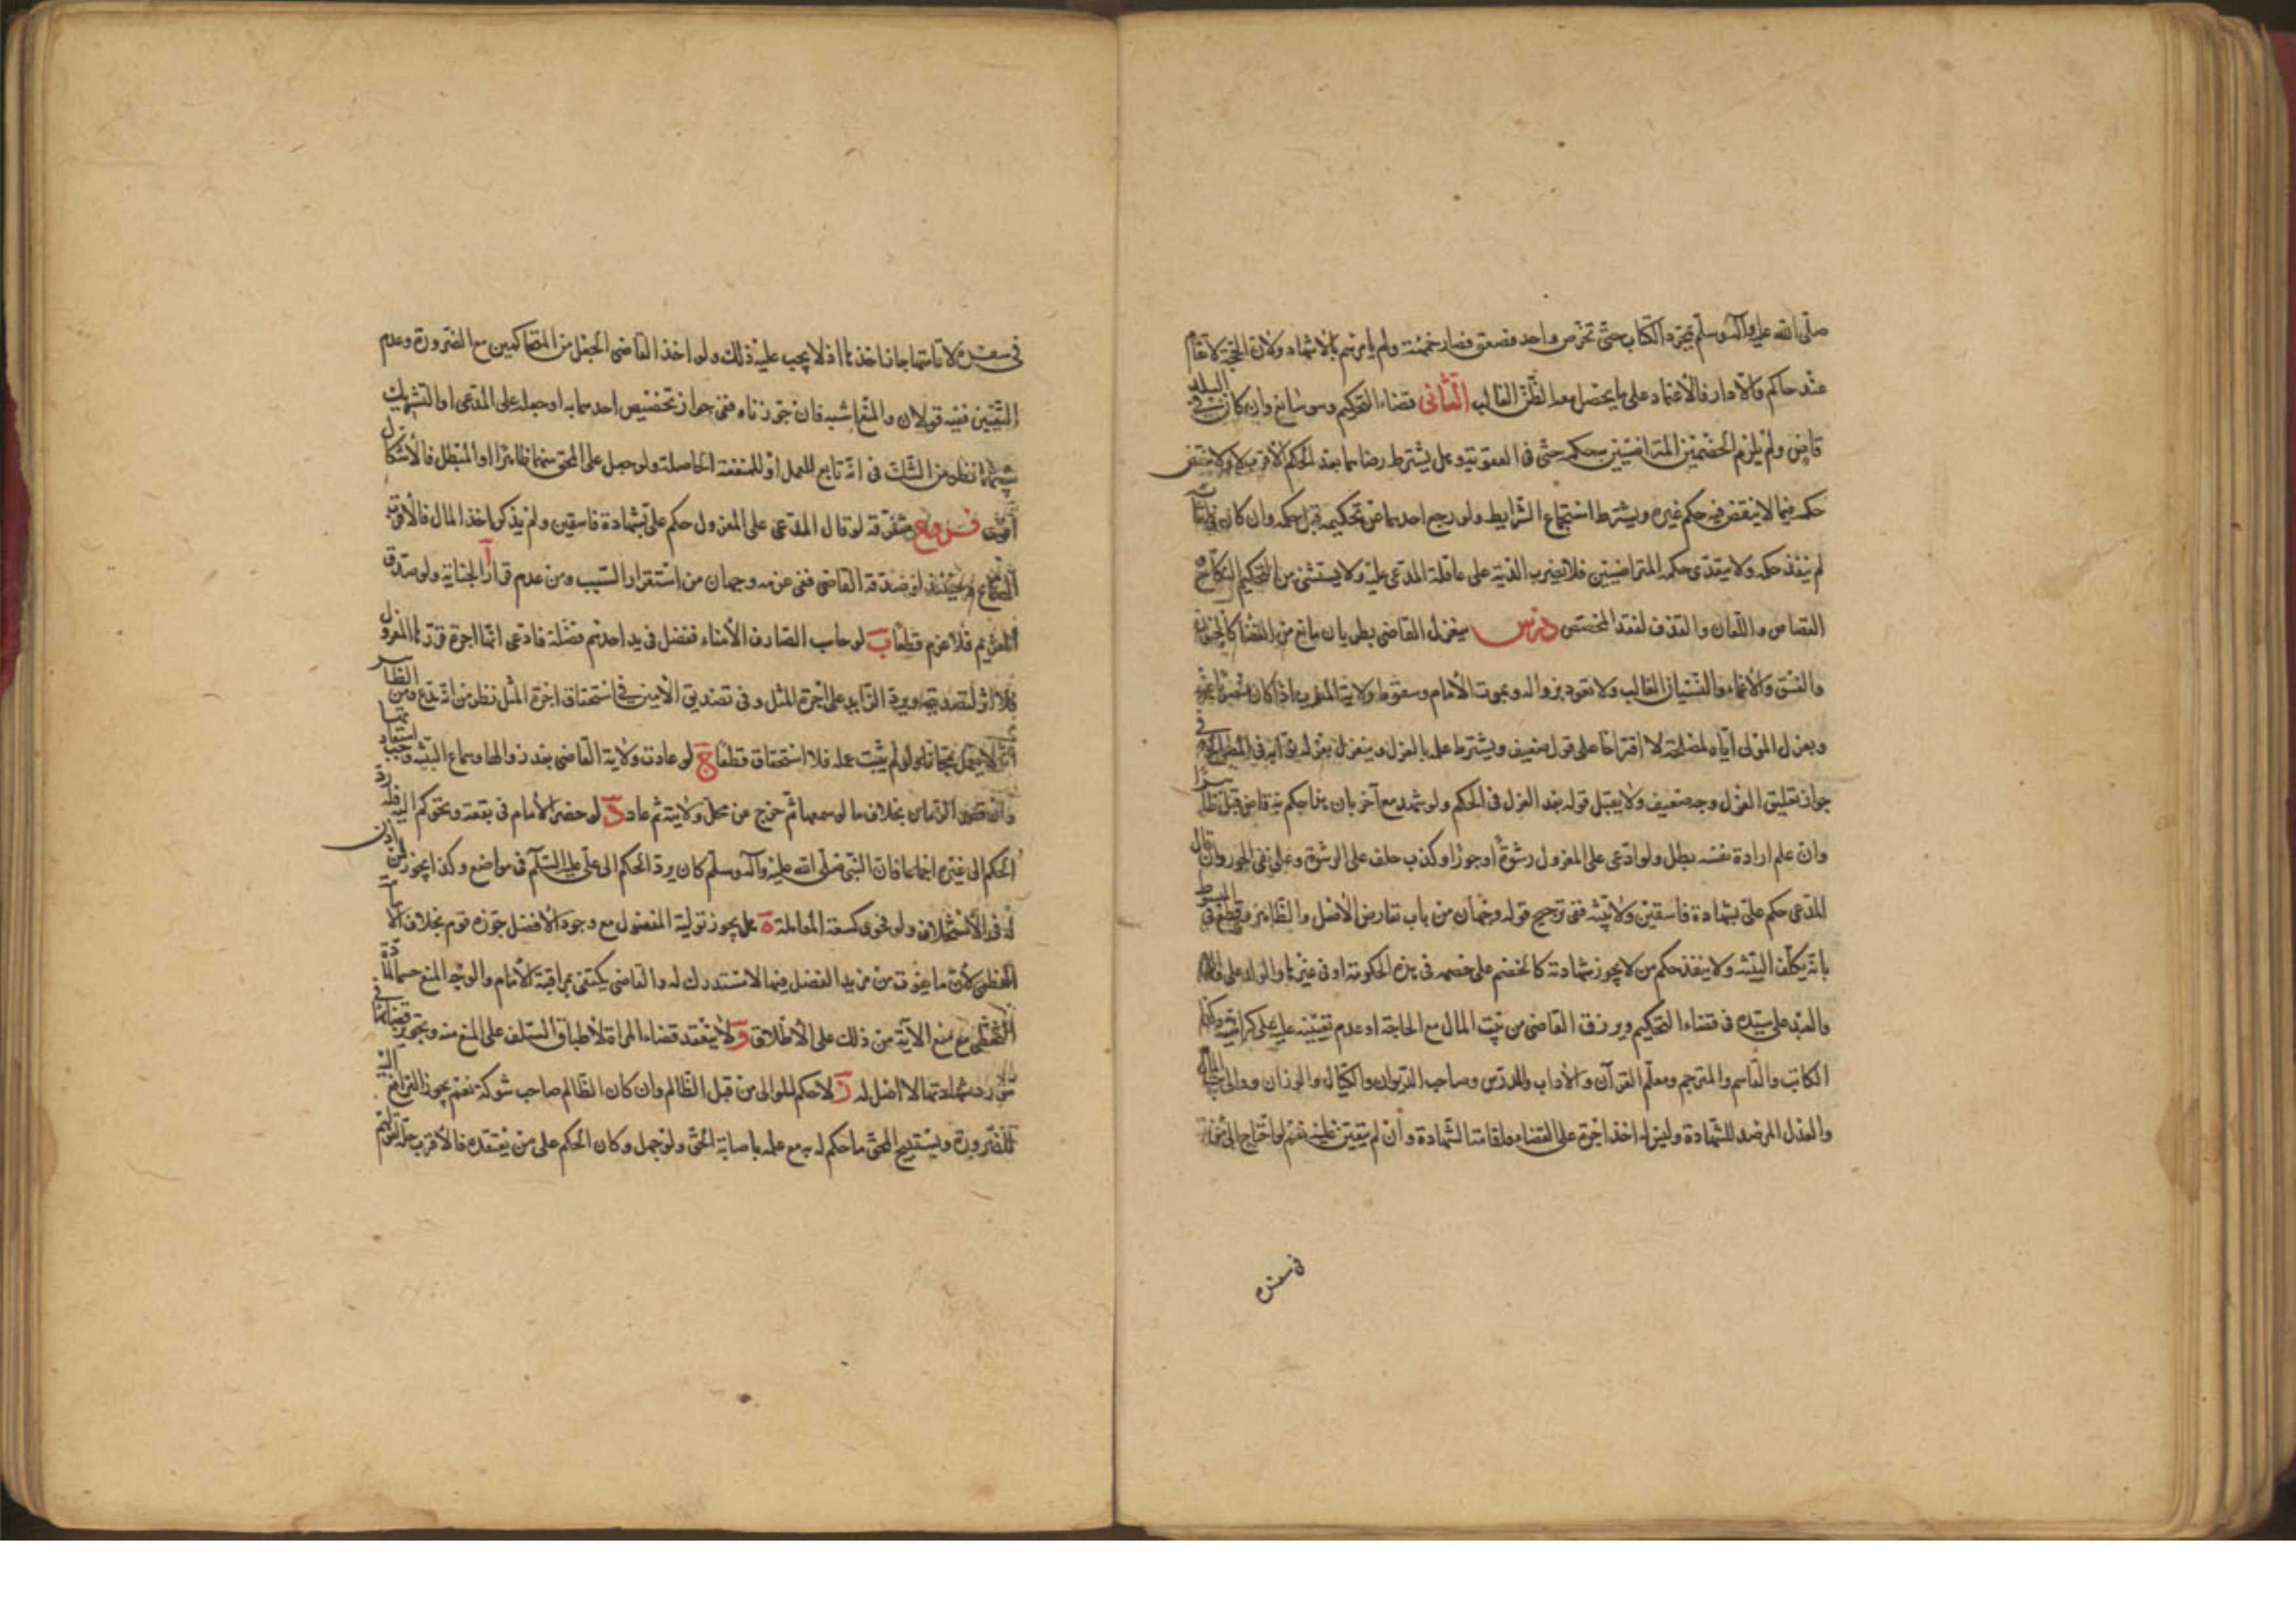 صلّى الله عليه وآله وسلّم بمجرّد الكتاب حتّى تخرّص واحد فصعق فصار حممة ولم يأمرهم بالاشهاد ولانّ الحجّة لا تقام
عند حاكم والّا دار فالاعتماد على ما يحصل معه الظنّ الغالب الثّانى قضاء التحكيم وهو سائغ وان كان فى البلد
قاض ولم يلزم الخصمين المتراضيين بحكمه حتّى فى العقوبة وهل يشترط رضاهما بعد الحكم الاقرب لا ولا ينقض
حكمه فيما لا ينقض فيه حكم غيره ويشترط استجماع الشّرايط ولو رجع احدهما عن تحكيمه قبل حكمه وان كان فى اثنائه
لم ينفذ حكمه ولا يتعدّى حكمه المتراضيين فلا يضرب الدّية على عاقلة المدّعى عليه ولا يستثنى من التحكيم النّكاح و
القصاص واللّعان والقذف لفقد المخصّص درس ينعزل القاضى بطريان مانع من القضاء كالجنون
والفسق والاغماء والنّسيان الغالب ولا تعود بزواله وبموت الامام وسقوط ولاية المنصوب اذا كان
وبعزل المولى ايّاه لمصلحة لا اقتراحا على قول ضعيف ويشترط علمه بالعزل وينعزل بعزله نوّابه فى
جواز تعليق العزل وجه ضعيف ولا يقبل قوله بعد العزل فى الحكم ولو شهد مع آخر بان هذا حكم به قاض قبل ظاهرا
وان علم ارادة نفسه بطل ولو ادّعى على المعزول رشوة او جورا وكذب حلف على الرشوة وعلى نفى الجور وان قال
المدّعى حكم علىّ بشهادة فاسقين ولا بيّنة ففى ترجيح قوله وجهان من باب تعارض الاصل والظّاهر وقطع فى المبسوط
بانّه يكلّف البيّنة ولا ينفذ حكم من لا يجوز شهادته كالخصم على خصمه فى هذه الحكومة او فى غيرها والولد على والده
والعبد على سيّده فى قضاء التحكيم ويرزق القاضى من بيت المال مع الحاجة او عدم تعيينه عليه على كراهية وكذا
الكاتب والقاسم والمترجم ومعلّم القرآن والآداب والمدرّس وصاحب الدّيوان والكيّال والوزّان ووالى بيت المال
والعدل المرصد للشّهادة وليس له اخذ اجرة على القضاء ولاقامة الشّهادة وان لم يتعيّن عليه نعم لو احتاج الى
فى سفره
فى سفره لاقامتها جاز اخذها اذ لا يجب عليه ذلك ولو اخذ القاضى الجعل من المتحاكمين مع الضّرورة وعدم
التعيّن ففيه قولان والمنع اشبه فان جوّزناه ففى جواز تخصيص احدهما به او جعله على المدّعى او التشريك
بينهما نظر من الشّكّ فى انّه تابع للعمل او للمنفعة الحاصلة ولو جعل على المحقّ منهما ظاهرا او المبطل فالاشكال
اقوى فروع متفرّقة لو قال المدّعى على المعزول حكم علىّ بشهادة فاسقين ولم يذكر اخذ المال فالاقرب
السّماع وحينئذ لو صدّقه القاضى ففى غرمه وجهان من استقرار السّبب ومن عدم قرار الجناية ولو صدّق
الغريم فلا غرم قطعا ب لو حاسب الصّارف الامناء ففضل فى يد احدهم فضلة فادّعى انّها اجرة قرّرها المعزول
فلا اثر لتصديقه ويردّ الزّايد على اجرة المثل وفى تصديق الامين فى استحقاق اجرة المثل نظر من انّه مدّع ومن الظّاهر
انّه لا يعمل مجّانا ولو لم يثبت عمله فلا استحقاق قطعا ج لو عادت ولاية القاضى بعد زوالها وسماع البيّنة وجب استعادتها
وان قصر الزّمان بخلاف ما لو سمعها ثمّ خرج من محلّ ولايته ثم عاد د لو حضر الامام فى بقعة وتحوكم اليه فله ردّ
الحكم الى غيره اجماعا فانّ النّبى صلّى الله عليه وآله وسلّم كان يردّ الحكم الى علىّ عليه السّلام فى مواضع وكذا يجوز لمن اذن
له فى الاستخلاف ولو فحوى كسعة المعاملة ه هل يجوز تولية المفضول مع وجود الافضل جوّزه قوم بخلاف الامامة
العظمى لانّ ما يفوت من مزيد الفضل فيها لا مستدرك له والقاضى يكتفى بمراقبة الامام والوجه المنع حسما لمادّة
التخطّى مع منع الآية من ذلك على الاطلاق و لا ينعقد قضاء المرأة لاطباق السّلف على المنع منه وتجويز قضائها فى
مورد شهادتها لا اصل له ز لا حكم للمولى من قبل الظّالم وان كان الظّالم صاحب شوكة نعم يجوز الترافع اليه
للضّرورة ويستبيح المحقّ ما حكم له به مع علمه باصابة الحقّ ولو جهل وكان الحكم على من يعتقده فالاقرب حلّه